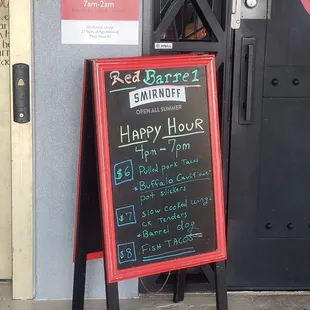 7am-2am
Red Barrel
SMIRNOFF
OPEN ALL SUMMER
HAPPY HOUR
4pm - 7pm
$6
Pulled pork Tacos
• Buffalo Cauliflower
pot stickers
$7
Slow cooked wings
CK Tenders
• Barrel dog
$8
FISH TACOS